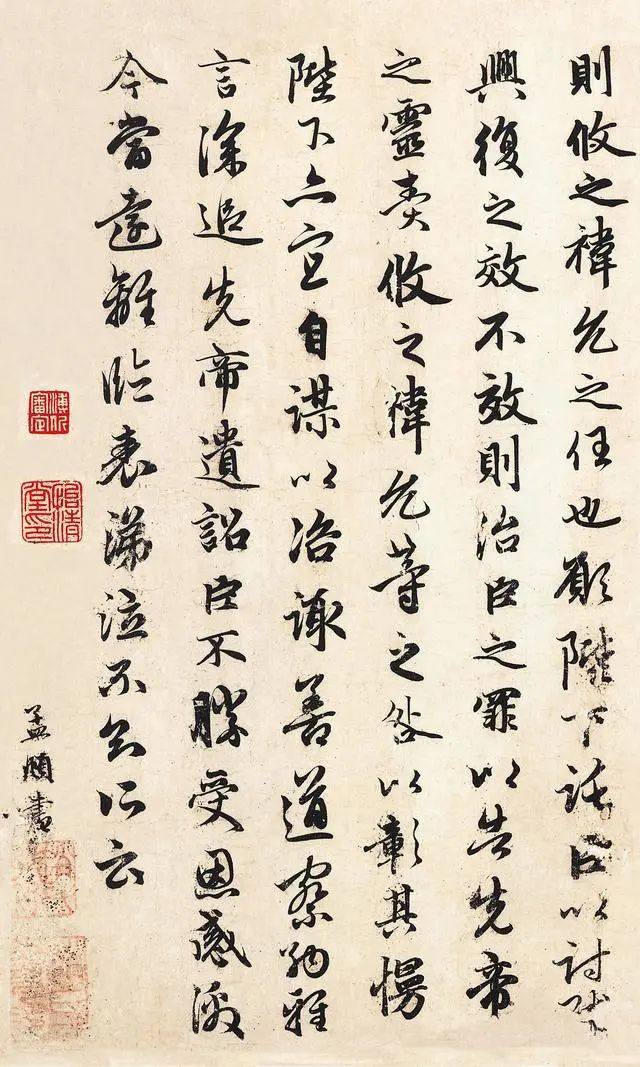 則攸之禕允之任也願陛下託臣以討賊
興復之效不效則治臣之罪以告先帝
之靈責攸之禕允等之咎以彰其慢
陛下亦宜自謀以咨諏善道察納雅
言深追先帝遺詔臣不勝受恩感激
今當遠離臨表涕泣不知所云
孟頫書